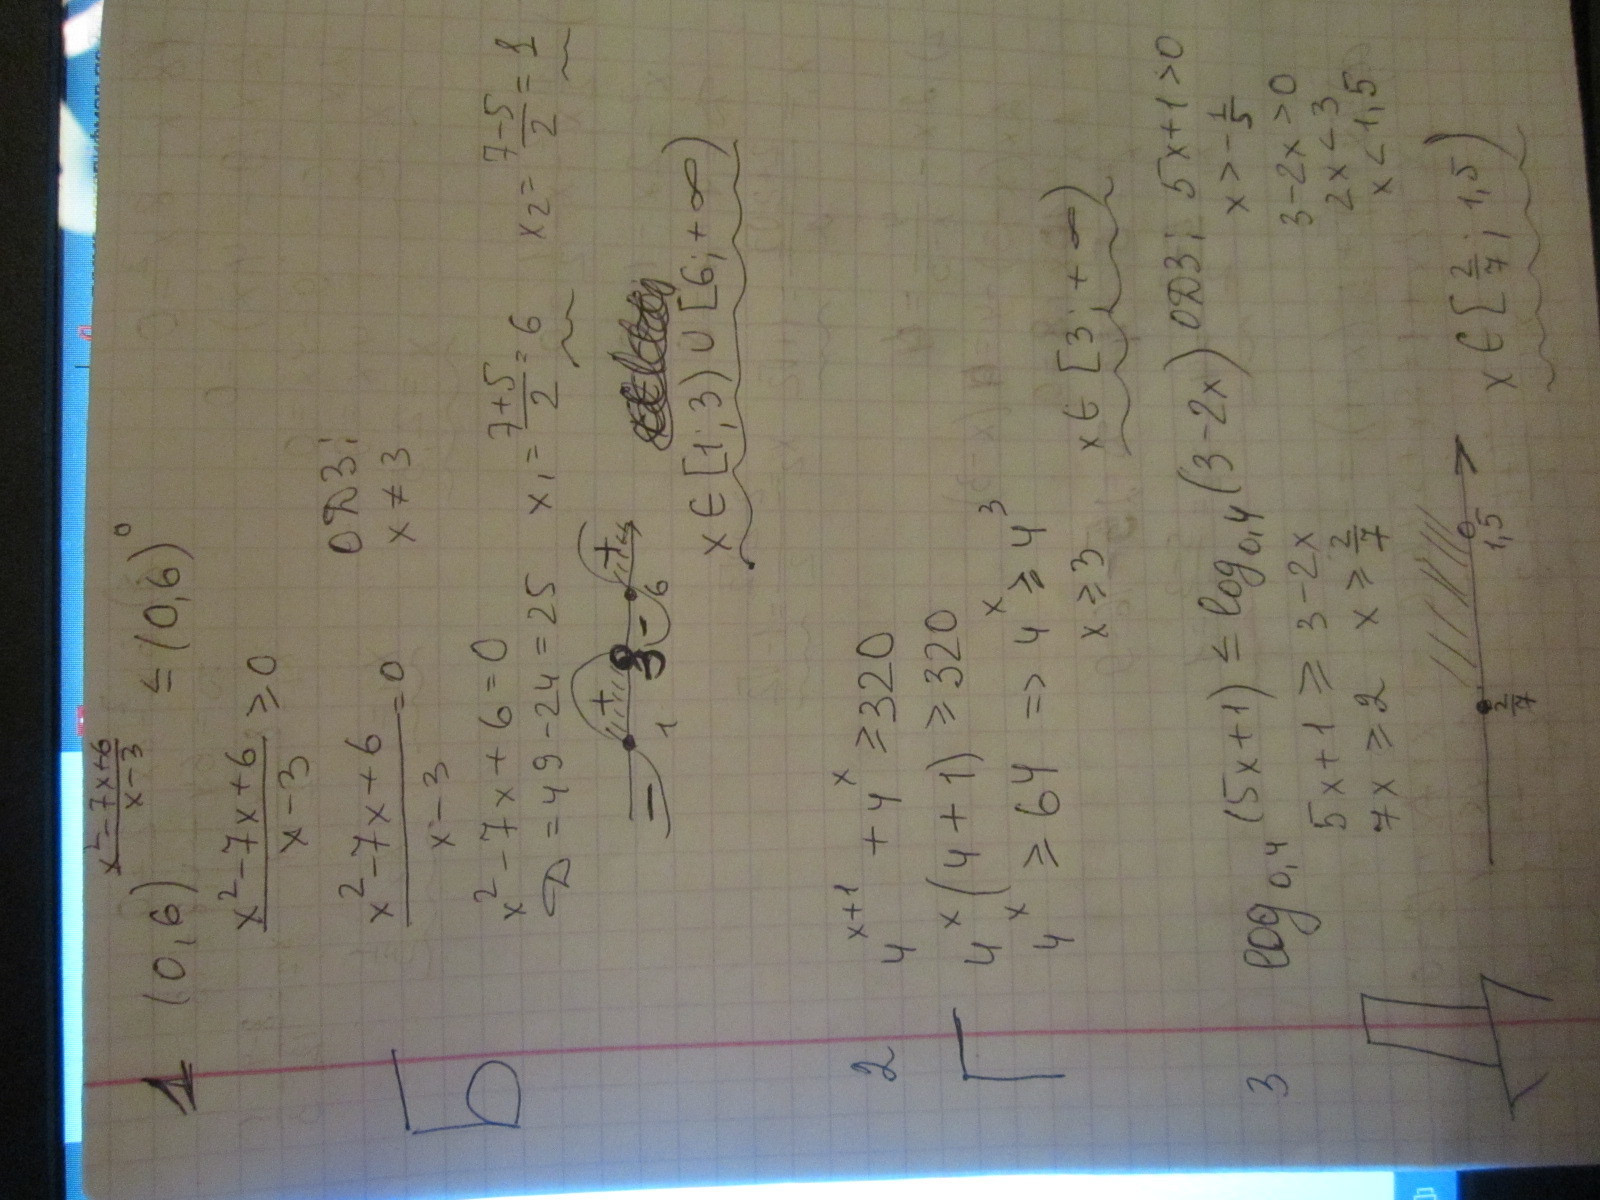 1 (0,6)^((x²-7x+6)/(x-3)) ≤ (0,6)⁰
(x²-7x+6)/(x-3) ≥ 0
(x²-7x+6)/(x-3) = 0 ОДЗ:
x ≠ 3
x²-7x+6=0
D = 49-24=25 x₁ = (7+5)/2 = 6 x₂ = (7-5)/2 = 1
- + - +
1 3 6
x ∈ [1; 3) ∪ [6; +∞)
Б
2 4^(x+1) + 4^x ≥ 320
4^x (4+1) ≥ 320
4^x ≥ 64 => 4^x ≥ 4³
x ≥ 3 x ∈ [3; +∞)
Г
3 log₀,₄ (5x+1) ≤ log₀,₄ (3-2x) ОДЗ: 5x+1>0
x > -1/5
5x+1 ≥ 3-2x 3-2x>0
7x ≥ 2 x ≥ 2/7 2x<3
x<1,5
2/7 1,5
x ∈ [2/7; 1,5)
Д